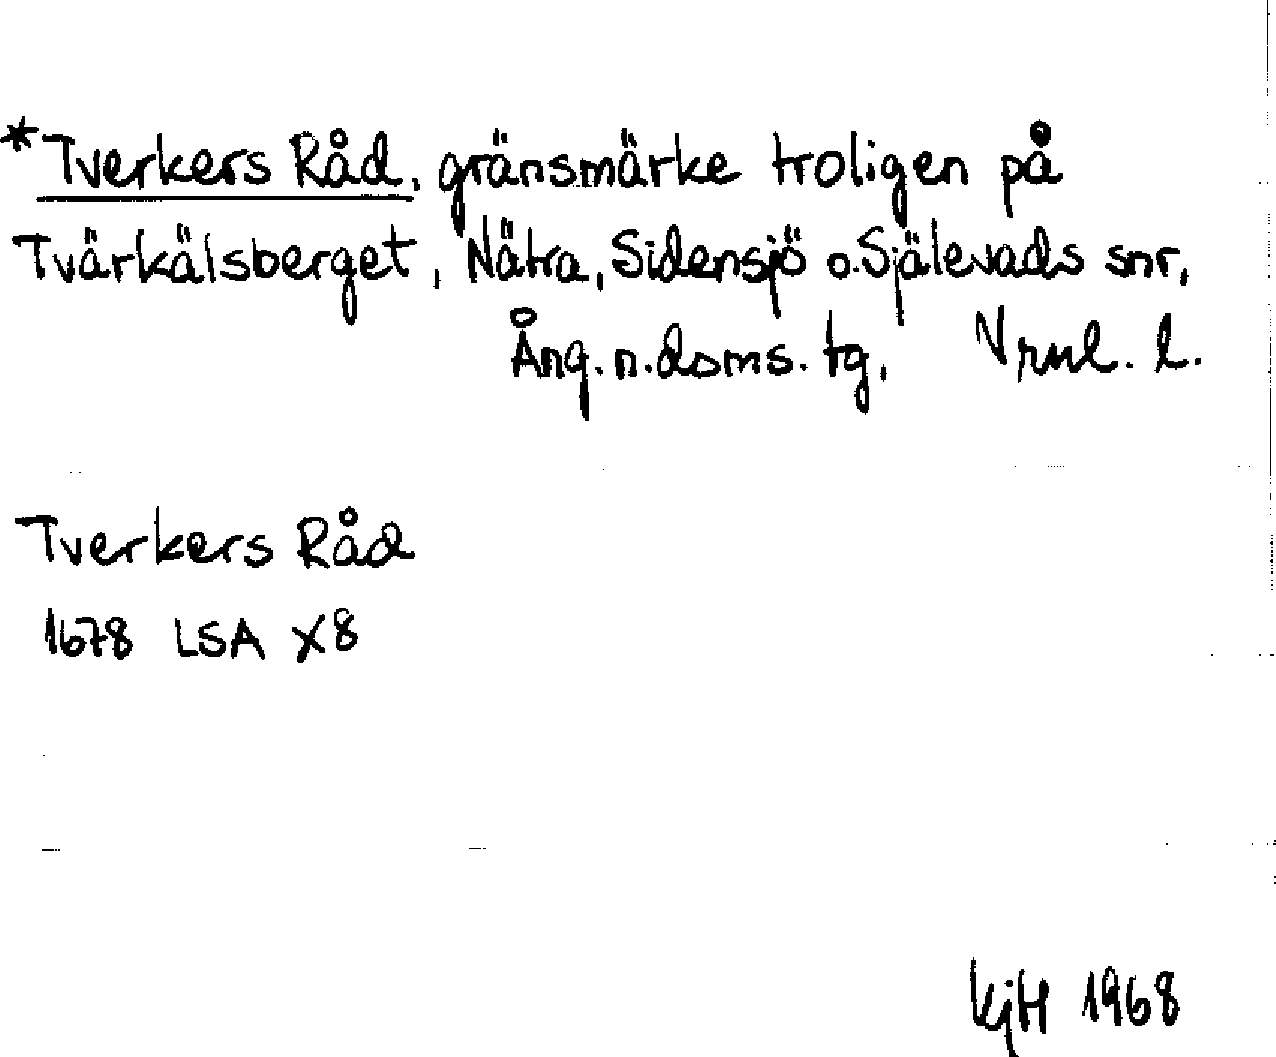 *Tverkers Råd, gränsmärke troligen på
Tvärkälsberget, Nätra, Sidensjö o. Själevads snr,
Ång. n. doms. tg, Vrnl. l.
Tverkers Råd
1678 LSA X8
KjH 1968